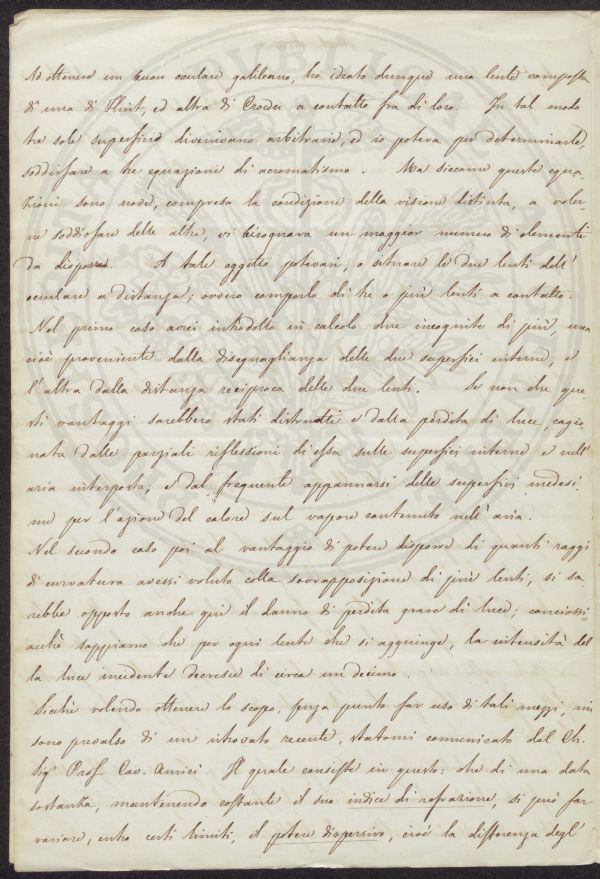 Ad ottenere un buon oculare galileano, ho ideato dunque una lente composta
di una di Flint, ed altra di Crown a contatto fra di loro. In tal modo
tre sole superficie divenivano arbitrarie, ed io poteva per determinarle,
soddisfare a tre equazioni di acromatismo. Ma siccome queste equa-
zioni sono nove, compresa la condizione della visione distinta, a voler-
ne soddisfare delle altre, vi bisognava un maggior numero di elementi
da disporre. A tale oggetto potevasi, o situare le due lenti dell'
oculare a distanza; ovvero comporlo di tre o più lenti a contatto.
Nel primo caso avrei introdotto in calcolo due incognite di più, una
cioè proveniente dalla diseguaglianza delle due superfici interne, e
l'altra dalla distanza reciproca delle due lenti. Se non che que
sti vantaggi sarebbero stati distrutti e dalla perdita di luce, cagio
nata dalle parziali riflessioni di essa sulle superfici interne e nell'
aria interposta, e dal frequente appannarsi delle superfici medesi
me per l'azione del calore sul vapore contenuto nell'aria.
Nel secondo caso poi al vantaggio di potere disporre di quanti raggi
di curvatura avessi voluto colla sovrapposizione di più lenti, si sa
rebbe opposto anche qui il danno di perdita grave di luce; conciossi-
acchè sappiamo che per ogni lente che si aggiunge, la intensità del
la luce incidente decresce di circa un decimo.
Sicchè volendo ottenere lo scopo, senza punto far uso di tali mezzi, mi
sono prevalso di un ritrovato recente, statomi comunicato dal Ch.
Sig.r Prof. Cav. Amici. Il quale consiste in questo: che di una data
sostanza, mantenendo costante il suo indice di refrazione, si può far
variare, entro certi limiti, il potere dispersivo, cioè la differenza degl'